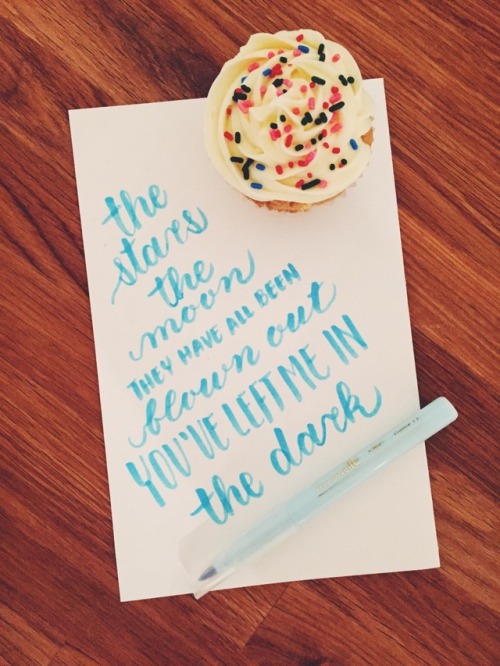 the
stars
the
moon
THEY HAVE ALL BEEN
blown out
YOU'VE LEFT ME IN
the dark